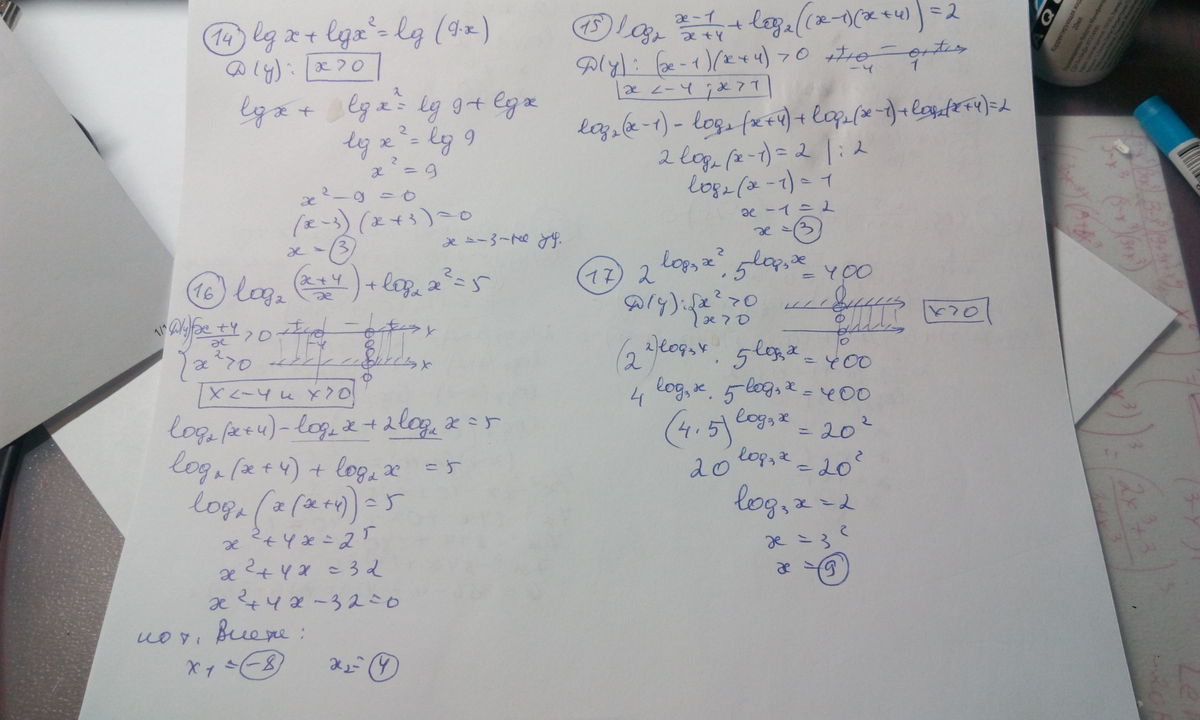 14) lg x + lg x² = lg (9·x)
D(y): x>0
lg x + lg x² = lg 9 + lg x
lg x² = lg 9
x² = 9
x² − 9 = 0
(x−3)(x+3) = 0
x = 3   x = −3 – не уд.
15) log₂ (x−1)/(x+4) + log₂((x−1)(x+4)) = 2
D(y): (x−1)(x+4) > 0   + − +   −4   1
x < −4 ; x > 1
log₂(x−1) − log₂(x+4) + log₂(x−1) + log₂(x+4) = 2
2 log₂(x−1) = 2 | : 2
log₂(x−1) = 1
x−1 = 2
x = 3
16) log₂ ((x+4)/x) + log₂ x² = 5
D(y) { (x+4)/x > 0   + − +   −4   0   x
x² > 0   0   x
x < −4 и x > 0
log₂(x+4) − log₂x + 2log₂x = 5
log₂(x+4) + log₂x = 5
log₂(x(x+4)) = 5
x² + 4x = 2⁵
x² + 4x = 32
x² + 4x − 32 = 0
по т. Виета:
x₁ = −8   x₂ = 4
17) 2^(log₃x²) · 5^(log₃x) = 400
D(y): { x² > 0   0
x > 0   0   x>0
(2²)^(log₃x) · 5^(log₃x) = 400
4^(log₃x) · 5^(log₃x) = 400
(4·5)^(log₃x) = 20²
20^(log₃x) = 20²
log₃x = 2
x = 3²
x = 9